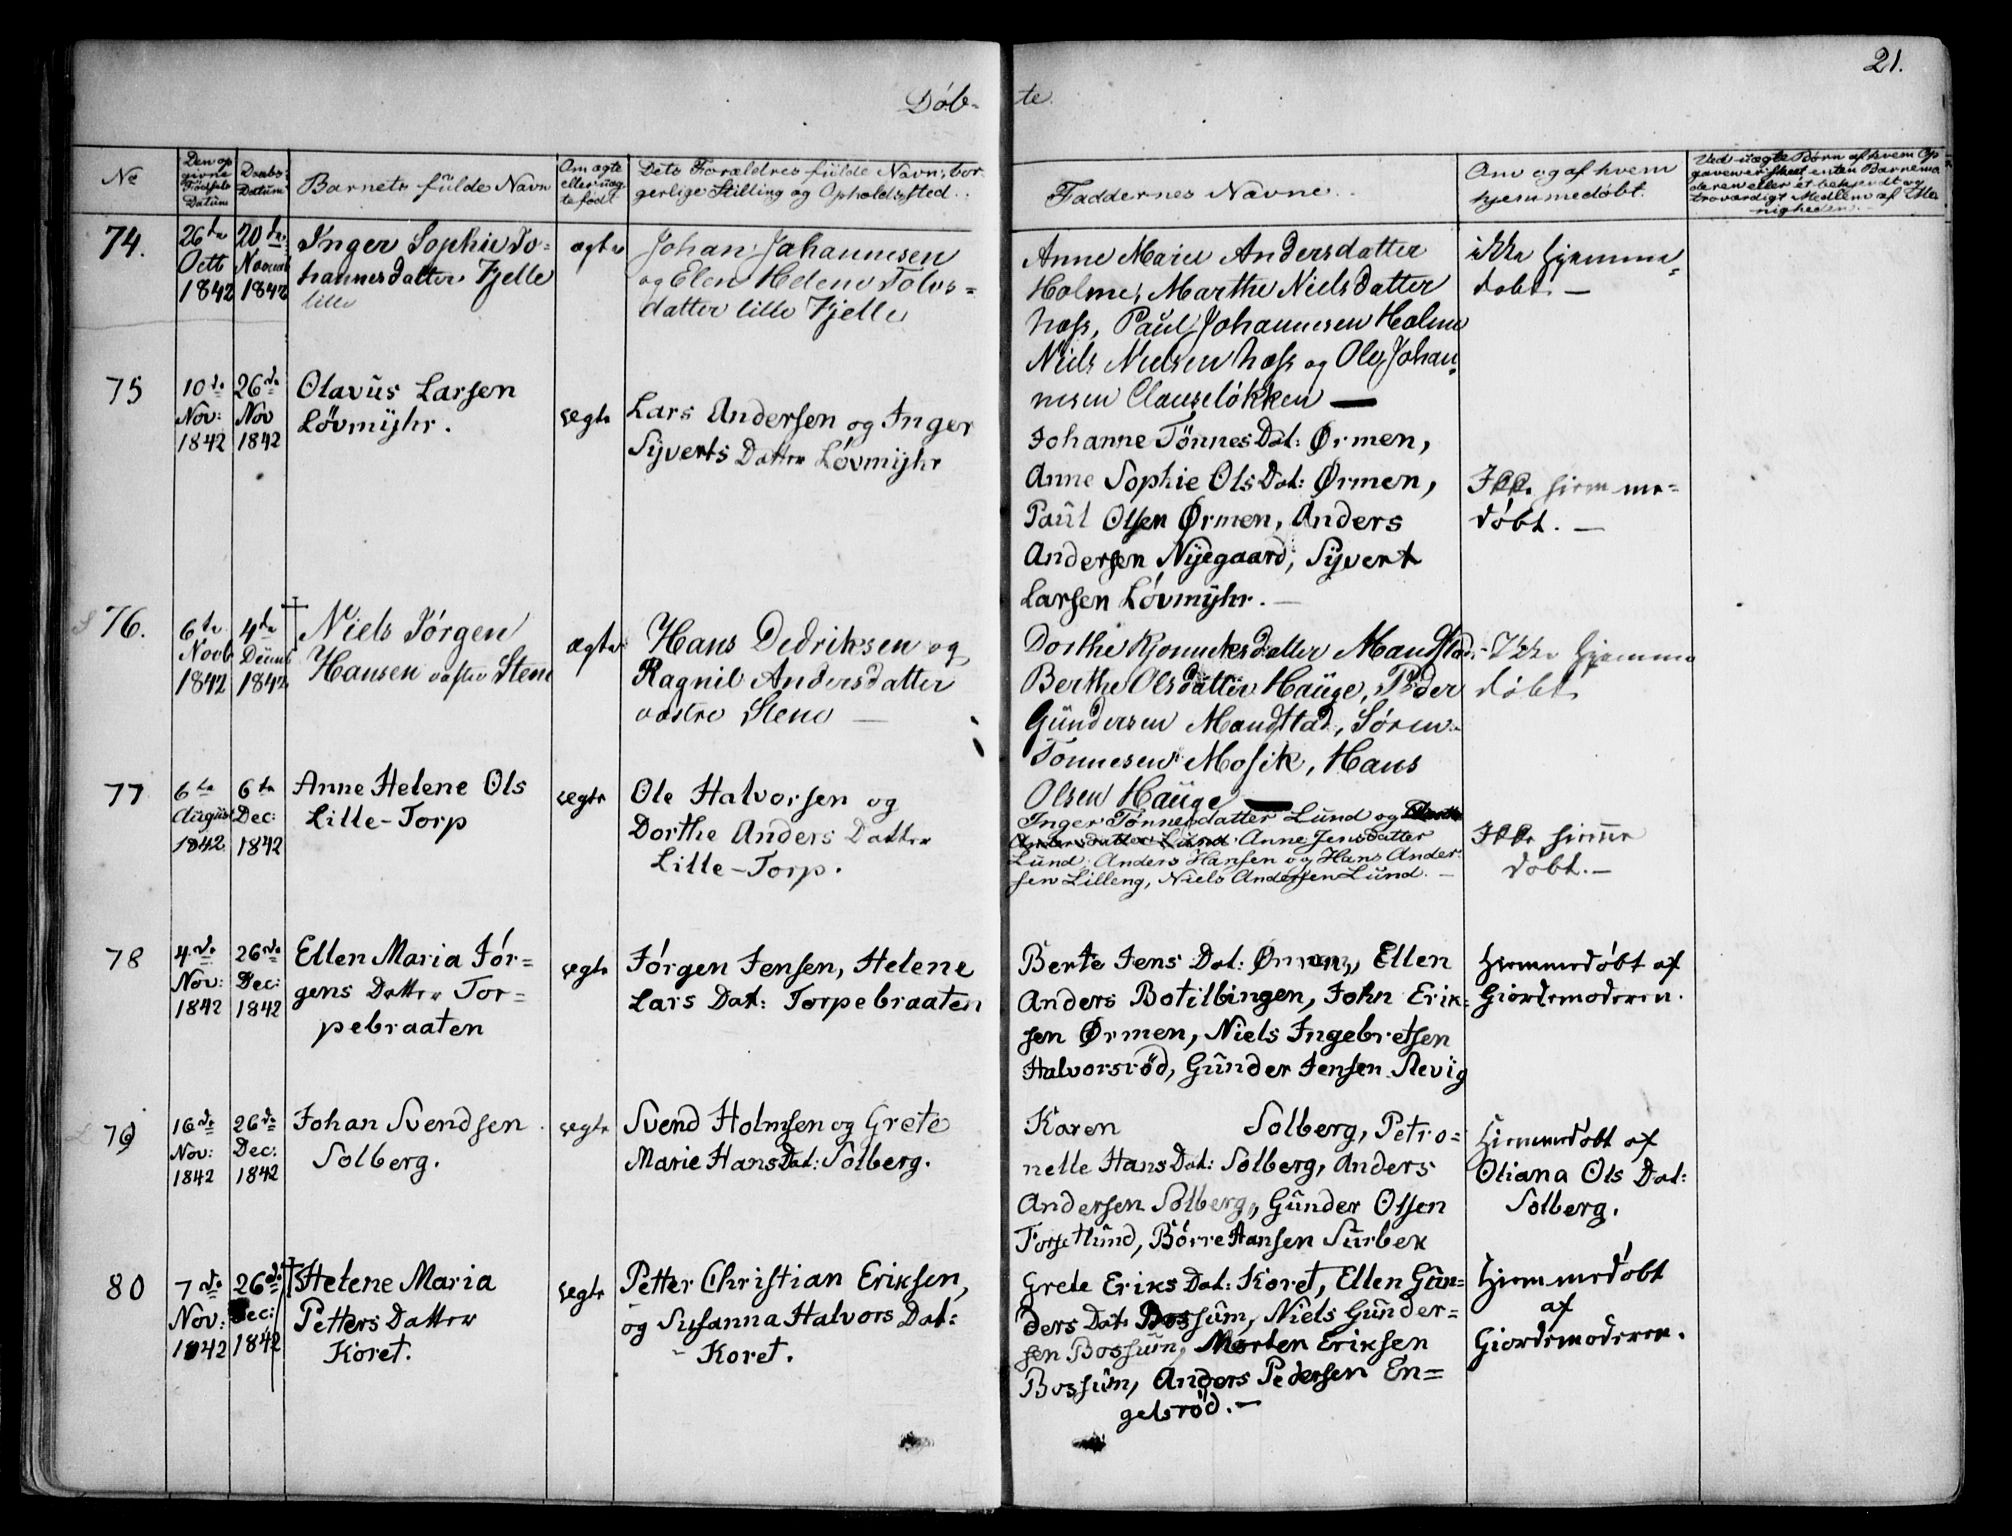 21.
Døb-
te.
No
Den op
givne
Fødsels
Datum
Daabs-
Datum
Barnets fulde Navn
Om ægte
eller uæg-
te født
Dets Forældres fulde Navn, bor-
gerlige Stilling og Opholdssted.
Faddernes Navne.
Om og af hvem
hjemmedøbt.
Ved uægte Børn af hvem Op
gaven er skeet enten Barnemo
deren eller et bekjendt og
troværdigt Medlem af Me-
nigheden.
74.
26de
Octb
1842
20de
Novemb
1842
Inger Sophie Jo-
hannesdatter Fjelle
lille
ægte
Johan Johannesen
og Elen Helene Tolvs-
datter lille Fjelle
Anne Marie Andersdatter
Holme, Marthe Nielsdatter
Paul Johannesen Holme
Niels Nielsen og Ole Johan-
nesen Clauseløkken —
ikke hjemme-
døbt. —
75
10de
Nov:
1842
26de
Nov
1842
Olavus Larsen
Løvmyhr.
ægte
Lars Andersen og Inger
Syverts Datter Løvmyhr
Johanne Tönnes Dat: Ørmen,
Anne Sophie Ols Dat: Ørmen,
Paul Olsen Ørmen, Anders
Andersen Nyegaard, Syvert
Larsen Løvmyhr. —
Ikke hiemme-
døbt. —
76.
6te
Novb
1842
4de
Decemb
1842
† Niels Jörgen
Hansen vastre Stene
ægte
Hans Dedriksen og
Ragnil Andersdatter
vastre Stene —
Dorthe Maugstad,
Berthe Olsdatter Hauge, Peder
Gundersen Maugstad, Sören
Tönnesen Mosik, Hans
Olsen Hauge —
Ikke hjemme
døbt
77
6te
August
1842
6te
Dec:
1842
Anne Helene Ols
Lille-Torp
ægte
Ole Halvorsen og
Dorthe Anders Datter
Lille-Torp.
Inger Tønnesdatter Lund og
Andersdatter Lund, Anne Jensdatter
Lund, Anders Hansen og Hans Ander-
sen Lilleng, Niels Andersen Lund. —
Ikke hiemme
døbt. —
78
4de
Nov:
1842
26de
Dec:
1842
Ellen Maria Jör-
gens Datter Tor-
pebraaten
ægte
Jörgen Jensen, Helene
Lars Dat: Torpebraaten
Berte Jens Dat: Ørmen, Ellen
Anders Botilbingen, John Erik-
sen Ørmen, Niels Ingebretsen
Halvorsröd, Gunder Jensen Slevig
Hiemmedøbt af
Giordemoderen.
79
16de
Nov:
1842
26de
Dec:
1842
Johan Svendsen
Solberg.
ægte
Svend Holmsen og Grete
Marie Hans Dat: Solberg.
Karen Solberg, Petro-
nelle Hans Dat: Solberg, Anders
Andersen Solberg, Gunder Olsen
Torsetlund, Børre Hansen Surbek
Hiemmedøbt af
Oliana Ols Dat:
Solberg.
80
7de
Nov:
1842
26de
Dec:
1842
† Helene Maria
Petters Datter
Koret.
ægte
Petter Christian Eriksen,
og Susanna Halvors Dat:
- Koret.
Grete Eriks Dat: Koret, Ellen Gun-
ders Dat: Bossum, Niels Gunder-
sen Bossum, Morten Eriksen
Bossum, Anders Pedersen En-
gelsröd. —
Hiemmedøbt
af
Giordemoderen.